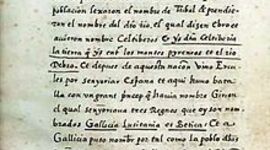 poblacion lexaron el nombre de Tubal & prendie-
ron el nombre del dio rio, el qual dizen Ebro &
quieren nombre Celtiberos & yo dun Celtiberia
la tierra q̃ yes entre los montes pyreneos & el rio
Debro. Et depues de aquesta nacion vino Ercu-
les por senyoriar Espana et aqui huuo bata-
lla con un grant princep q̃ hauia nombre Girion
el qual senyoriaua tres Regnos que oy son nom-
brados Gallicia Lusitania & Betica: Et a
Gallicia puso nombre por tal como la poblo dius